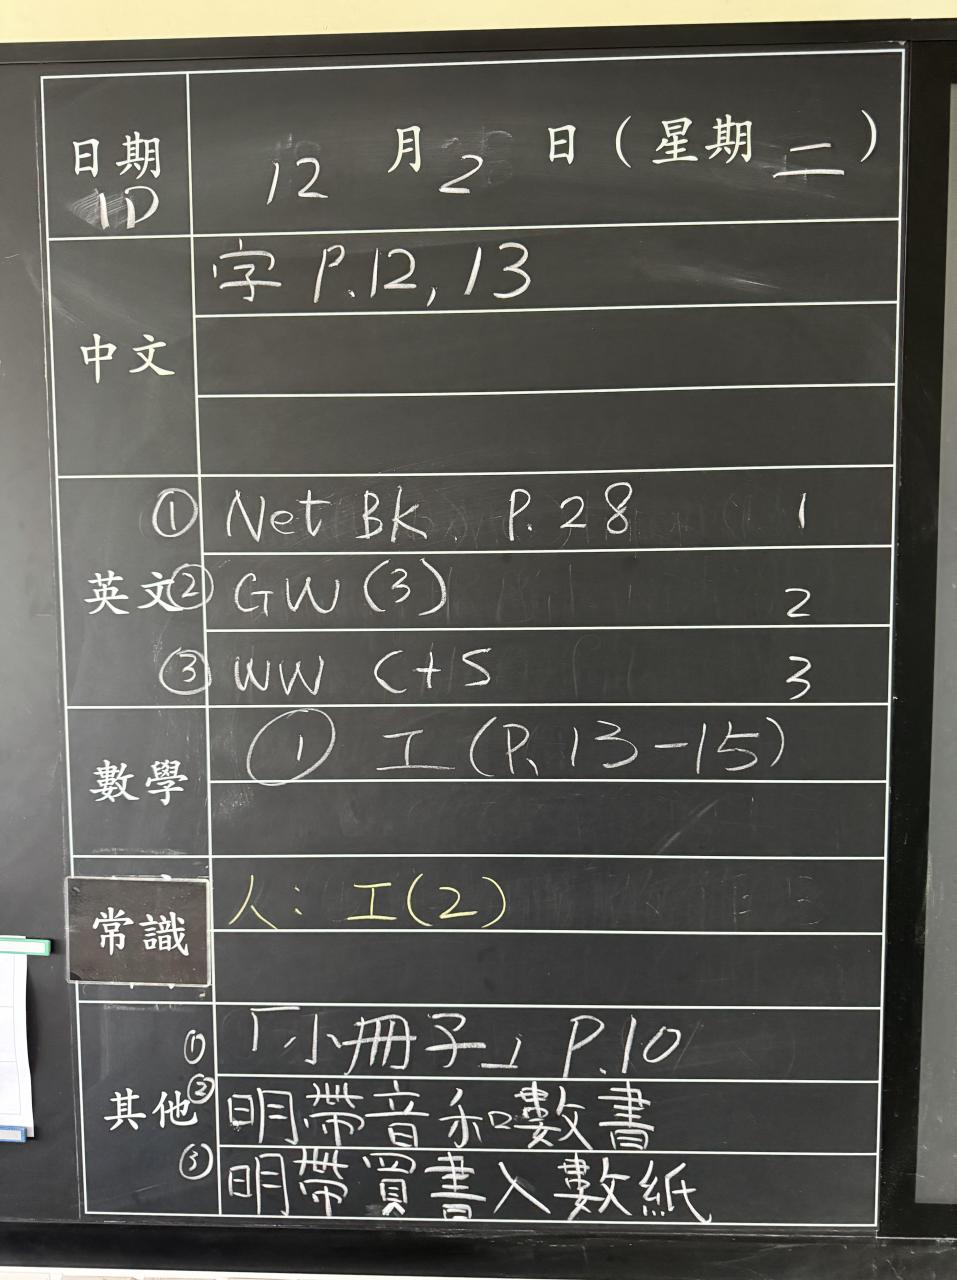 日期 12 月 2 日（星期二）
1D
中文 字 P.12, 13
英文
① Net BK P.28 1
② GW (3) 2
③ WW C+S 3
數學 ① 工 (P. 13-15)
常識 人: 工(2)
其他
① 「小冊子」 P.10
② 明帶音和數書
③ 明帶買書入數紙